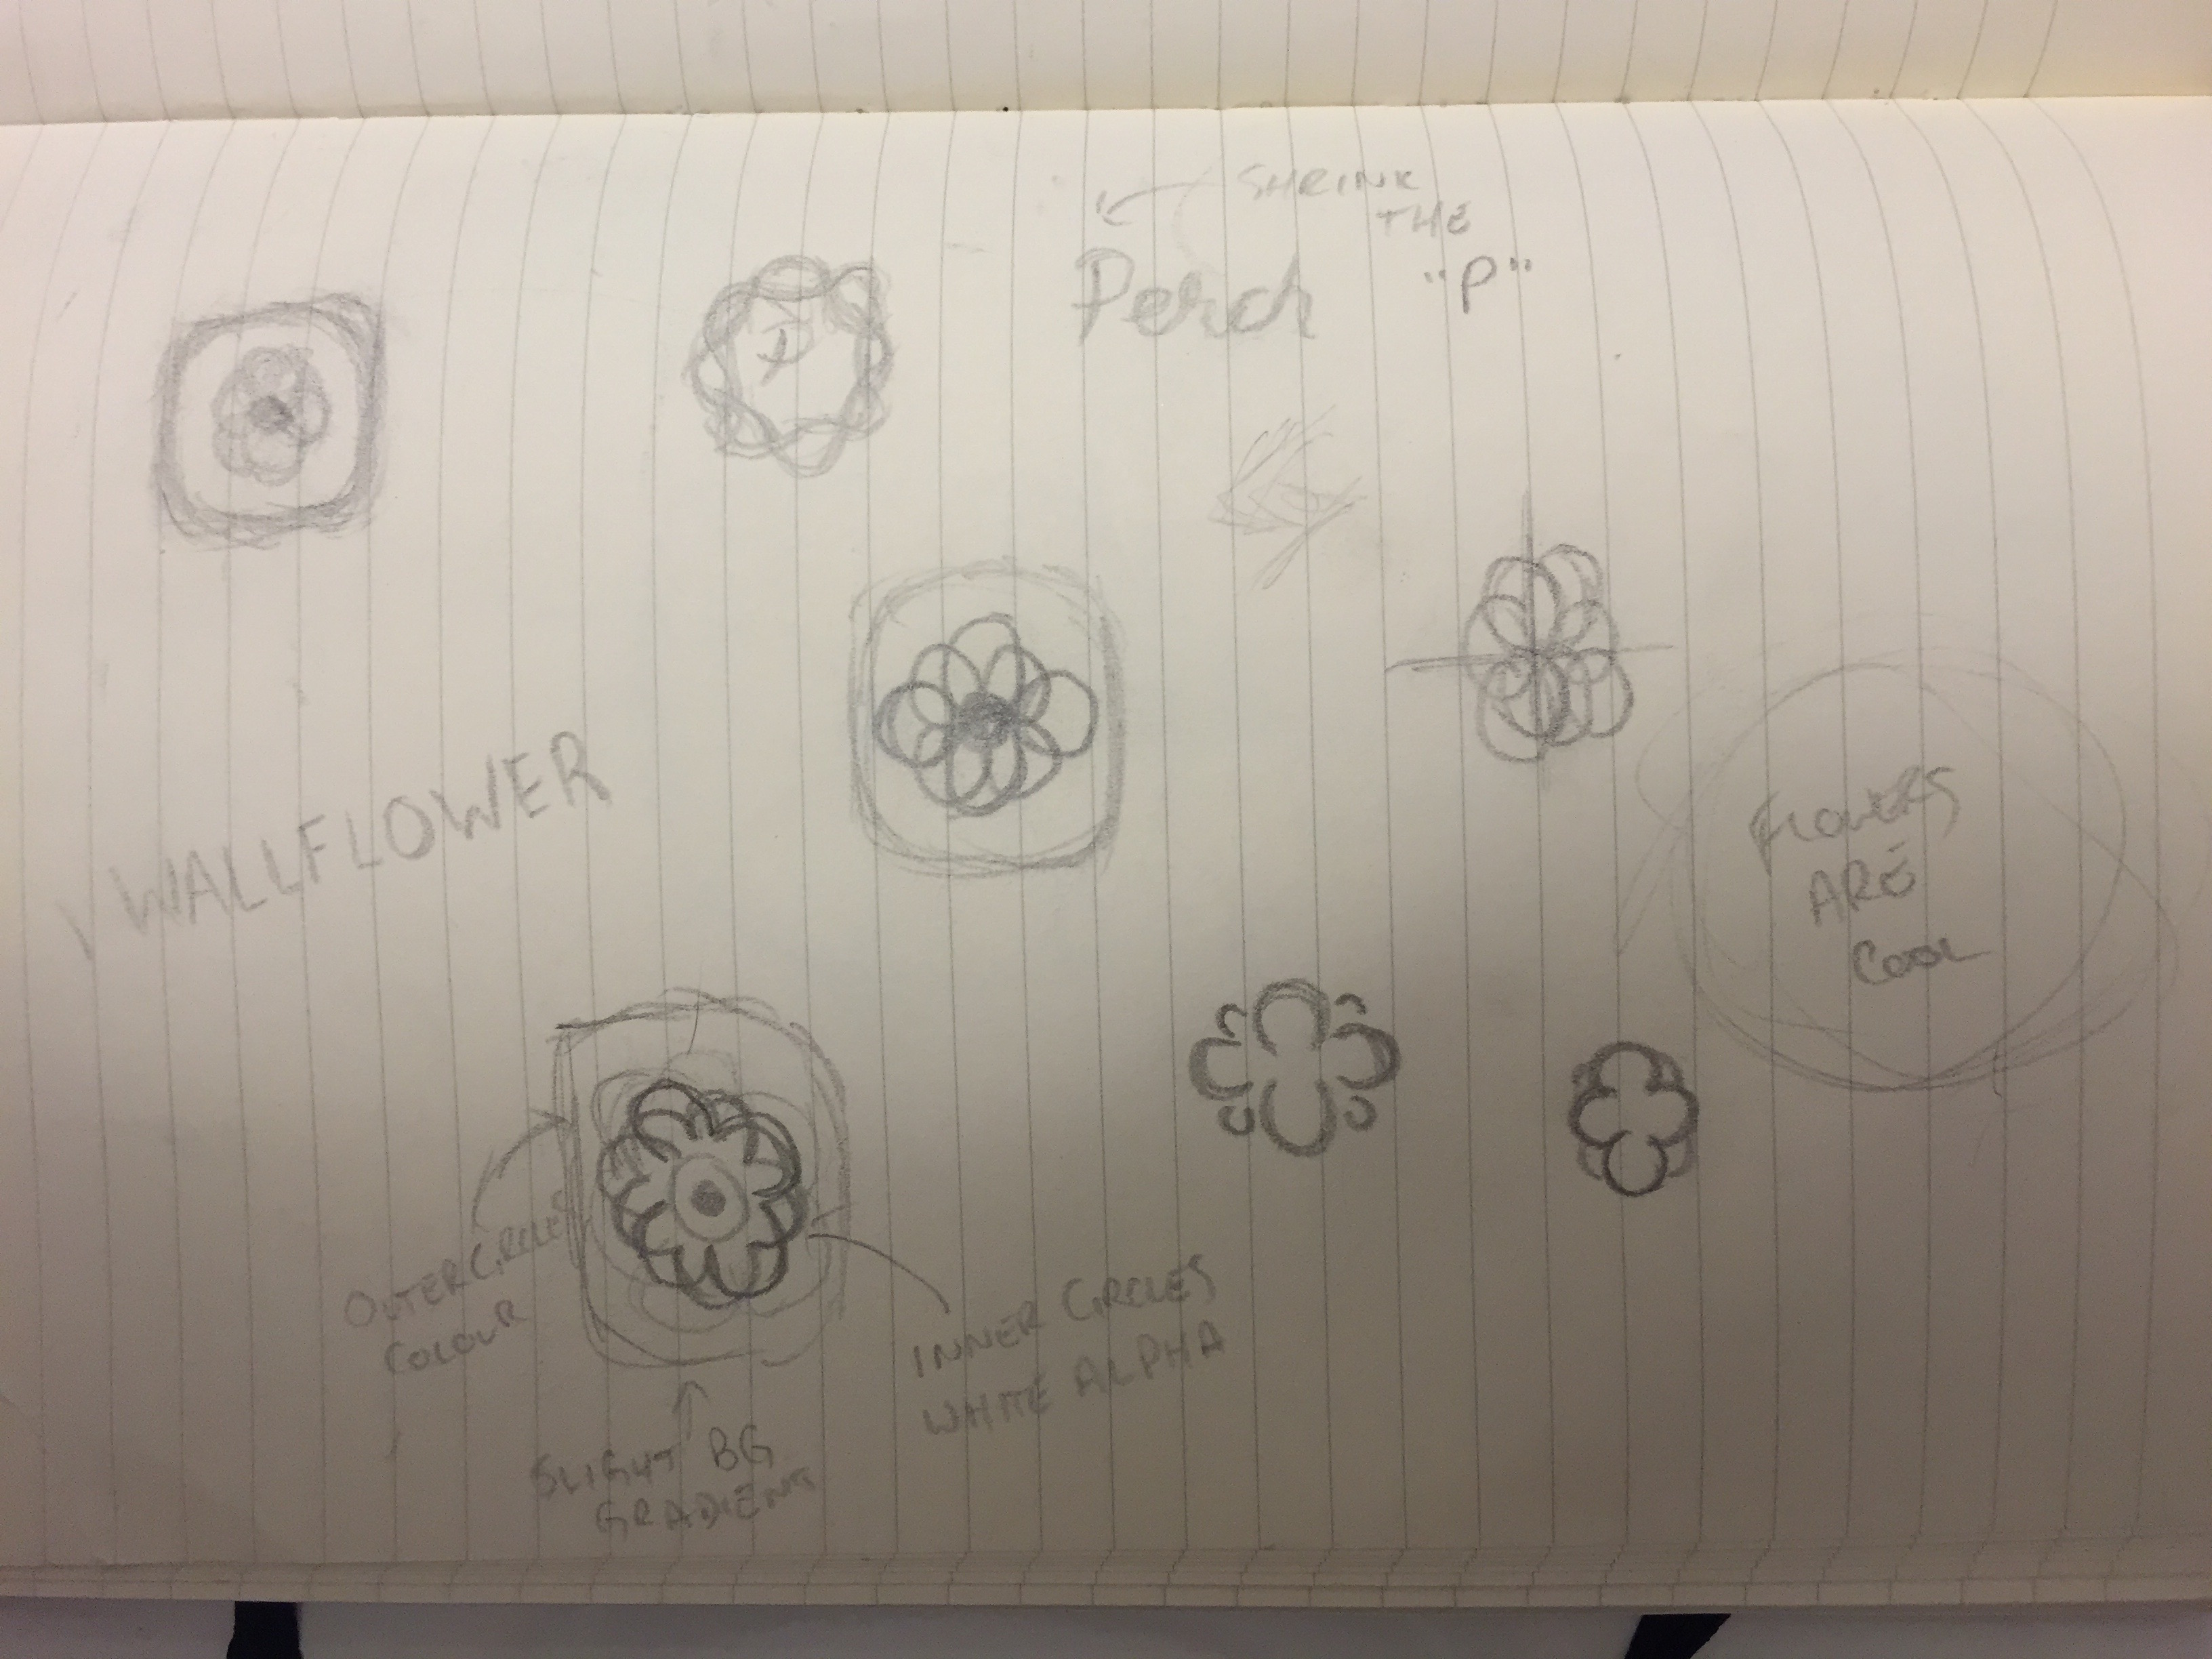 SHRINK
THE
"P"
Perch
P
WALLFLOWER
FLOWERS
ARE
COOL
OUTER CIRCLES
COLOUR
INNER CIRCLES
WHITE ALPHA
SLIGHT BG
GRADIENT